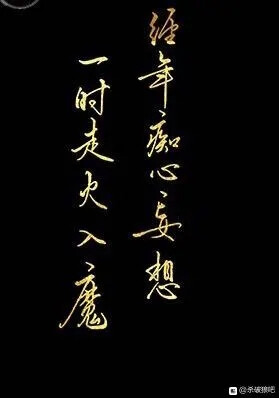 经年痴心妄想
一时走火入魔
@杀破狼吧